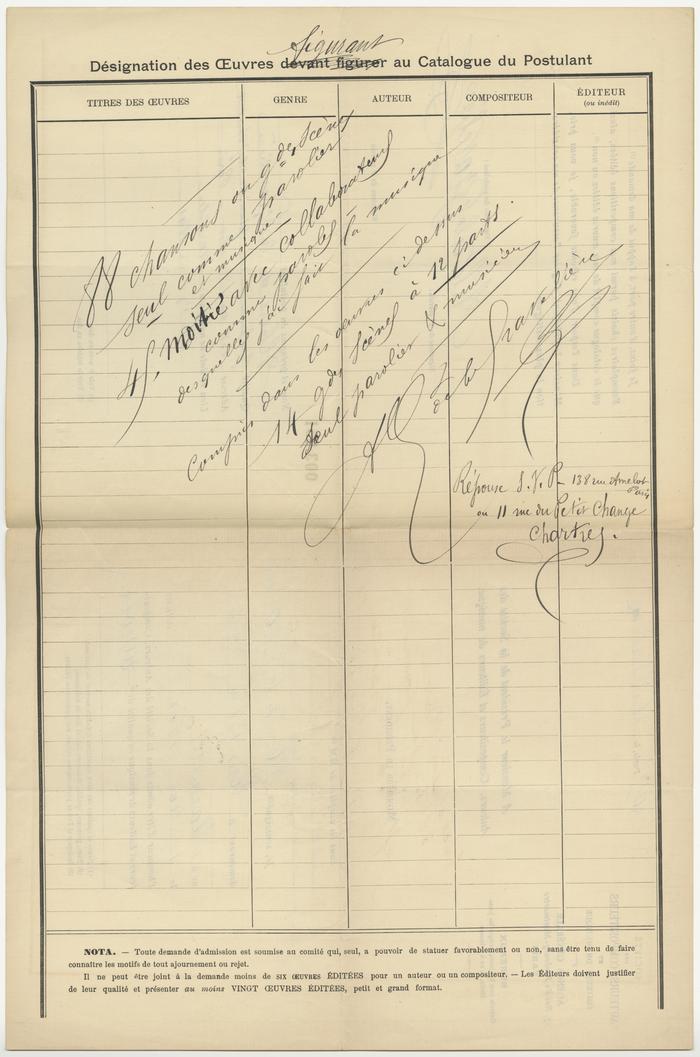 figurant
Désignation des Œuvres devant figurer au Catalogue du Postulant
TITRES DES ŒUVRES
GENRE
AUTEUR
COMPOSITEUR
ÉDITEUR
(ou inédit)
88 chansons ou gdes scènes
seul comme parolier
et musique
45, moitié avec collaborateurs
comme paroles —
desquelles j'ai fait la musique
Compris dans les œuvres ci dessus
14 gdes scènes à 12 parts.
seul parolier & musicien
de la
Réponse S.V.P — 138 rue Amelot
Paris
ou 11 rue du Petit Change
Chartres.
NOTA. — Toute demande d'admission est soumise au comité qui, seul, a pouvoir de statuer favorablement ou non, sans être tenu de faire
connaître les motifs de tout ajournement ou rejet.
Il ne peut être joint à la demande moins de SIX ŒUVRES ÉDITÉES pour un auteur ou un compositeur. — Les Éditeurs doivent justifier
de leur qualité et présenter au moins VINGT ŒUVRES ÉDITÉES, petit et grand format.